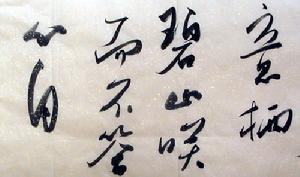 意栖
碧山咲
而不答
心自